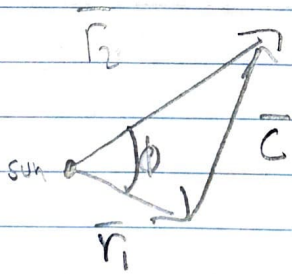 r̅₂
c̅
sun
ϕ
r̅₁